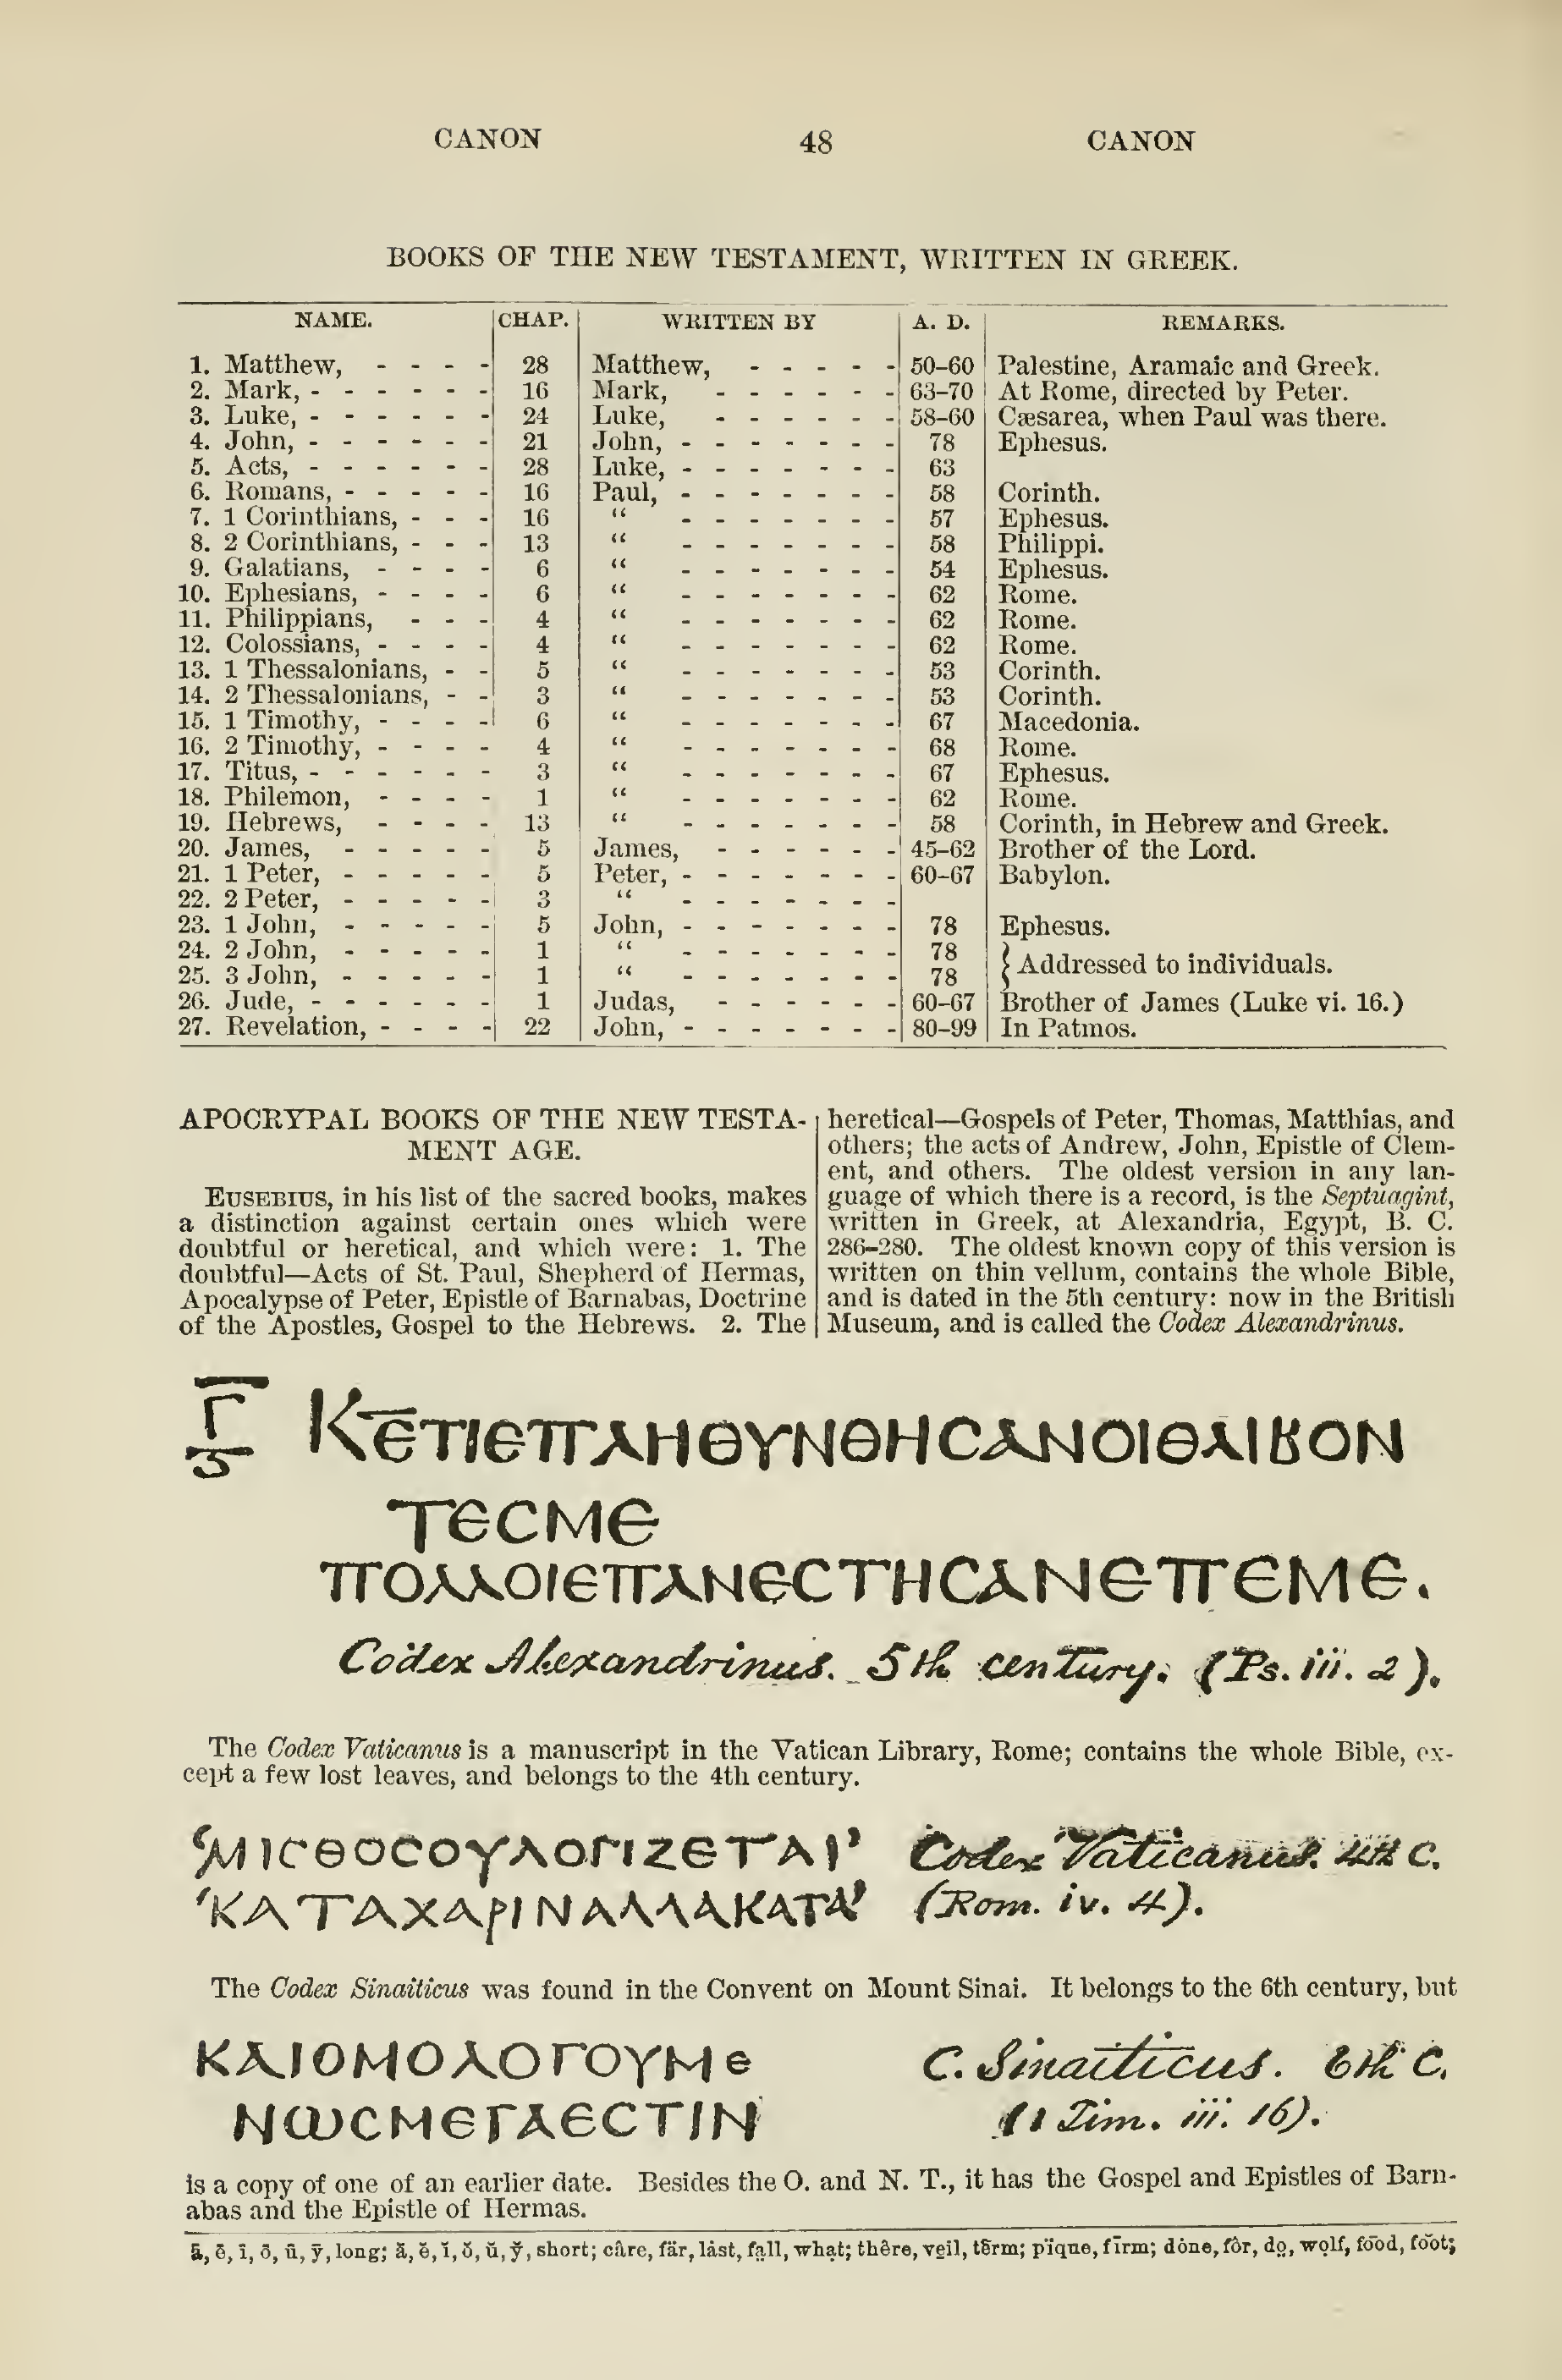 CANON 48 CANON
BOOKS OF THE NEW TESTAMENT, WRITTEN IN GREEK.
NAME. CHAP. WRITTEN BY A. D. REMARKS.
1. Matthew, - - - - 28 Matthew, - - - - - 50–60 Palestine, Aramaic and Greek.
2. Mark, - - - - - - 16 Mark, - - - - - - 63–70 At Rome, directed by Peter.
3. Luke, - - - - - - 24 Luke, - - - - - - 58–60 Cæsarea, when Paul was there.
4. John, - - - - - - 21 John, - - - - - - - 78 Ephesus.
5. Acts, - - - - - - 28 Luke, - - - - - - - 63
6. Romans, - - - - - 16 Paul, - - - - - - - 58 Corinth.
7. 1 Corinthians, - - - 16 “ - - - - - - - 57 Ephesus.
8. 2 Corinthians, - - - 13 “ - - - - - - - 58 Philippi.
9. Galatians, - - - - 6 “ - - - - - - - 54 Ephesus.
10. Ephesians, - - - - 6 “ - - - - - - - 62 Rome.
11. Philippians, - - - 4 “ - - - - - - - 62 Rome.
12. Colossians, - - - - 4 “ - - - - - - - 62 Rome.
13. 1 Thessalonians, - - 5 “ - - - - - - - 53 Corinth.
14. 2 Thessalonians, - - 3 “ - - - - - - - 53 Corinth.
15. 1 Timothy, - - - - 6 “ - - - - - - - 67 Macedonia.
16. 2 Timothy, - - - - 4 “ - - - - - - - 68 Rome.
17. Titus, - - - - - - 3 “ - - - - - - - 67 Ephesus.
18. Philemon, - - - - 1 “ - - - - - - - 62 Rome.
19. Hebrews, - - - - 13 “ - - - - - - - 58 Corinth, in Hebrew and Greek.
20. James, - - - - - 5 James, - - - - - - 45–62 Brother of the Lord.
21. 1 Peter, - - - - - 5 Peter, - - - - - - - 60–67 Babylon.
22. 2 Peter, - - - - - 3 “ - - - - - - -
23. 1 John, - - - - - 5 John, - - - - - - - 78 Ephesus.
24. 2 John, - - - - - 1 “ - - - - - - - 78
} Addressed to individuals.
25. 3 John, - - - - - 1 “ - - - - - - - 78
26. Jude, - - - - - - 1 Judas, - - - - - - 60–67 Brother of James (Luke vi. 16.)
27. Revelation, - - - - 22 John, - - - - - - - 80–99 In Patmos.
APOCRYPAL BOOKS OF THE NEW TESTA-
MENT AGE.
EUSEBIUS, in his list of the sacred books, makes
a distinction against certain ones which were
doubtful or heretical, and which were: 1. The
doubtful—Acts of St. Paul, Shepherd of Hermas,
Apocalypse of Peter, Epistle of Barnabas, Doctrine
of the Apostles, Gospel to the Hebrews. 2. The
heretical—Gospels of Peter, Thomas, Matthias, and
others; the acts of Andrew, John, Epistle of Clem-
ent, and others. The oldest version in any lan-
guage of which there is a record, is the Septuagint,
written in Greek, at Alexandria, Egypt, B. C.
286–280. The oldest known copy of this version is
written on thin vellum, contains the whole Bible,
and is dated in the 5th century: now in the British
Museum, and is called the Codex Alexandrinus.
Γ ΚΕΤΙΕΠΛΗΘΥΝΘΗCΑΝΟΙΘΛΙΒΟΝ
ΤΕCΜΕ
ΠΟΛΛΟΙΕΠΑΝΕCΤΗCΑΝΕΠΕΜΕ.
Codex Alexandrinus. 5th century. (Ps. iii. 2).
The Codex Vaticanus is a manuscript in the Vatican Library, Rome; contains the whole Bible, ex-
cept a few lost leaves, and belongs to the 4th century.
‘ΜΙCΘΟCΟΥΛΟΓΙΖΕΤΑΙ’ Codex Vaticanus. 4th C.
‘ΚΑΤΑΧΑΡΙΝΑΛΛΑΚΑΤΑ’ (Rom. iv. 4).
The Codex Sinaiticus was found in the Convent on Mount Sinai. It belongs to the 6th century, but
ΚΑΙΟΜΟΛΟΓΟΥΜΕ C. Sinaiticus. 6th C.
ΝΩCΜΕΓΑΕCΤΙΝ (1 Tim. iii. 16).
is a copy of one of an earlier date. Besides the O. and N. T., it has the Gospel and Epistles of Barn-
abas and the Epistle of Hermas.
ā, ē, ī, ō, ū, ȳ, long; ă, ĕ, ĭ, ŏ, ŭ, y̆, short; câre, fär, låst, fạll, whạt; thêre, vẹil, tẽrm; pïque, fīrm; dȯne, fôr, dọ, wọlf, fōōd, fŏŏt;